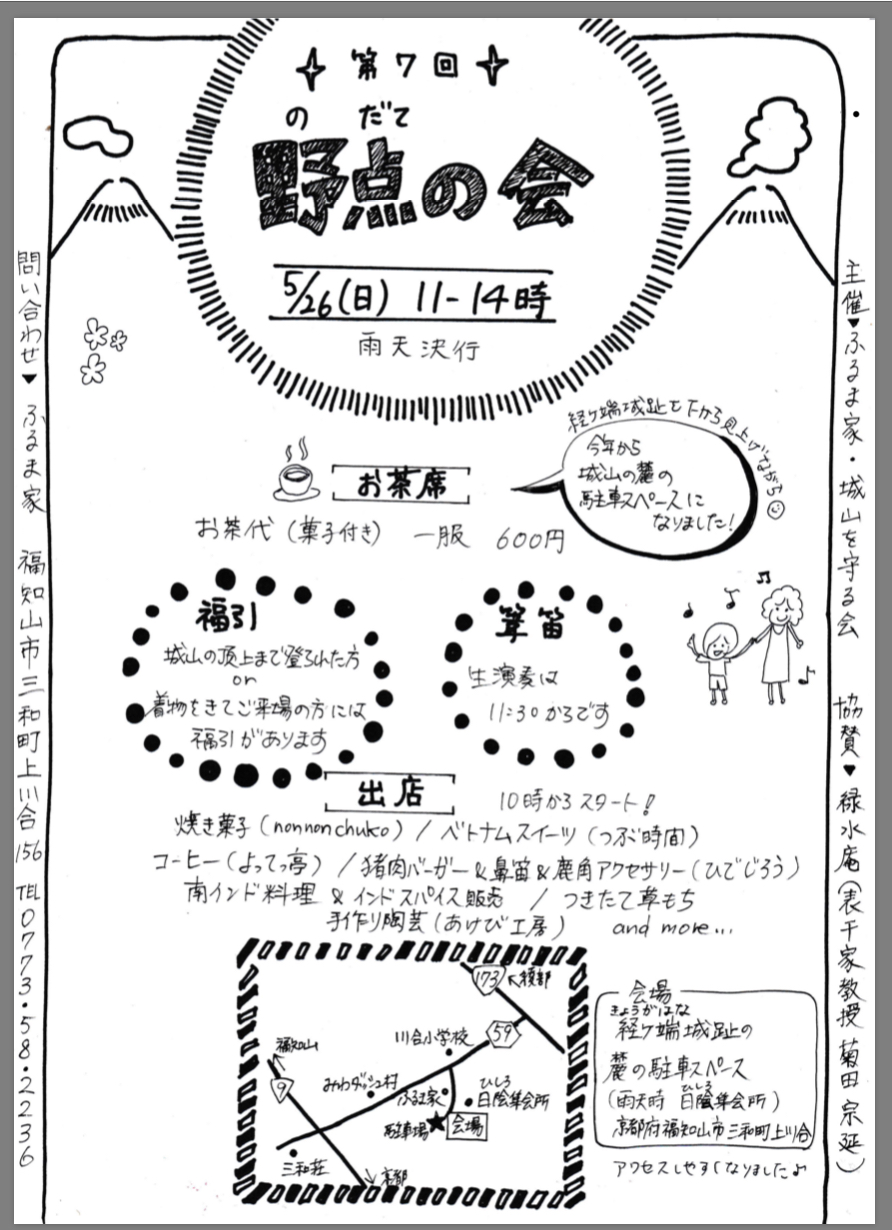 第7回
のだて
野点の会
5/26(日) 11-14時
雨天決行
経ヶ端城趾を下から見上げながら
今年から
城山の麓の
駐車スペースに
なりました!
お茶席
お茶代(菓子付き) 一服 600円
福引
城山の頂上まで登られた方
or
着物をきてご来場の方には
福引があります
笛
生演奏は
11:30からです
出店
10時からスタート!
焼き菓子(nonnonchuko) / ベトナムスイーツ(つぶ時間)
コーヒー(よってっ亭) / 猪肉バーガー&鼻笛&鹿角アクセサリー(ひでじろう)
南インド料理 & インドスパイス販売 / つきたて草もち
手作り陶芸(あけび工房) and more...
173
綾部
59
川合小学校
福知山
9
みわダッシュ村
ふるま家
ひしろ
日陰集会所
駐車場
会場
三和荘
京都
会場
きょうがはな
経ヶ端城趾の
麓の駐車スペース
ひしろ
(雨天時 日陰集会所)
京都府福知山市三和町上川合
アクセスしやすくなりました♪
問い合わせ▼ ふるま家 福知山市三和町上川合156 TEL0773・58・2236
主催▼ふるま家・城山を守る会 協賛▼緑水庵(表千家教授 菊田宗延)